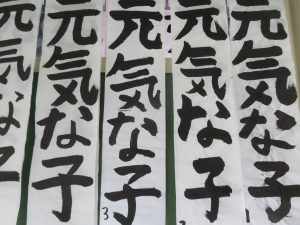 元気な子
元気な子
元気な子
元気な子
元気な子
3